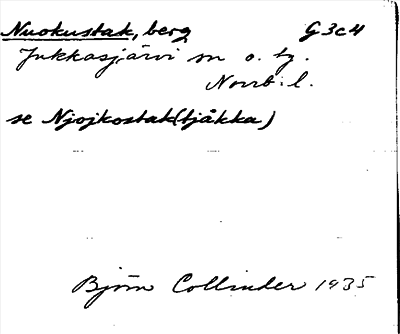 Nuokustak, berg G3c4
Jukkasjärvi sn o. tg.
Norrb. l.
se Njojkostak(tjåkka)
Björn Collinder 1935